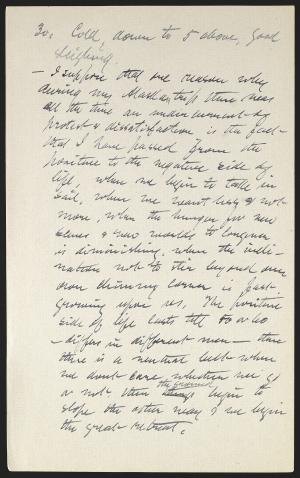 30. Cold, down to 8 above, good
sleighing.
— I suppose that one reason why
during my Alaskan trip there was
all the time an undercurrent of
protest & dissatisfaction, is the fact
that I have passed from the
positive to the negative side of
life, when we begin to take in
sail, when we want less & not
more, when the hunger for new
scenes & new worlds to conquer
is diminishing, when the incli-
nation not to stir beyond one's
own chimney corner is fast
growing upon us. The positive
side of life lasts till 50 or 60
— differs in different men — then
there is a neutral belt when
we don't care whether we go
or not, then the ground begins to
slope the other way & we begin
the great retreat.